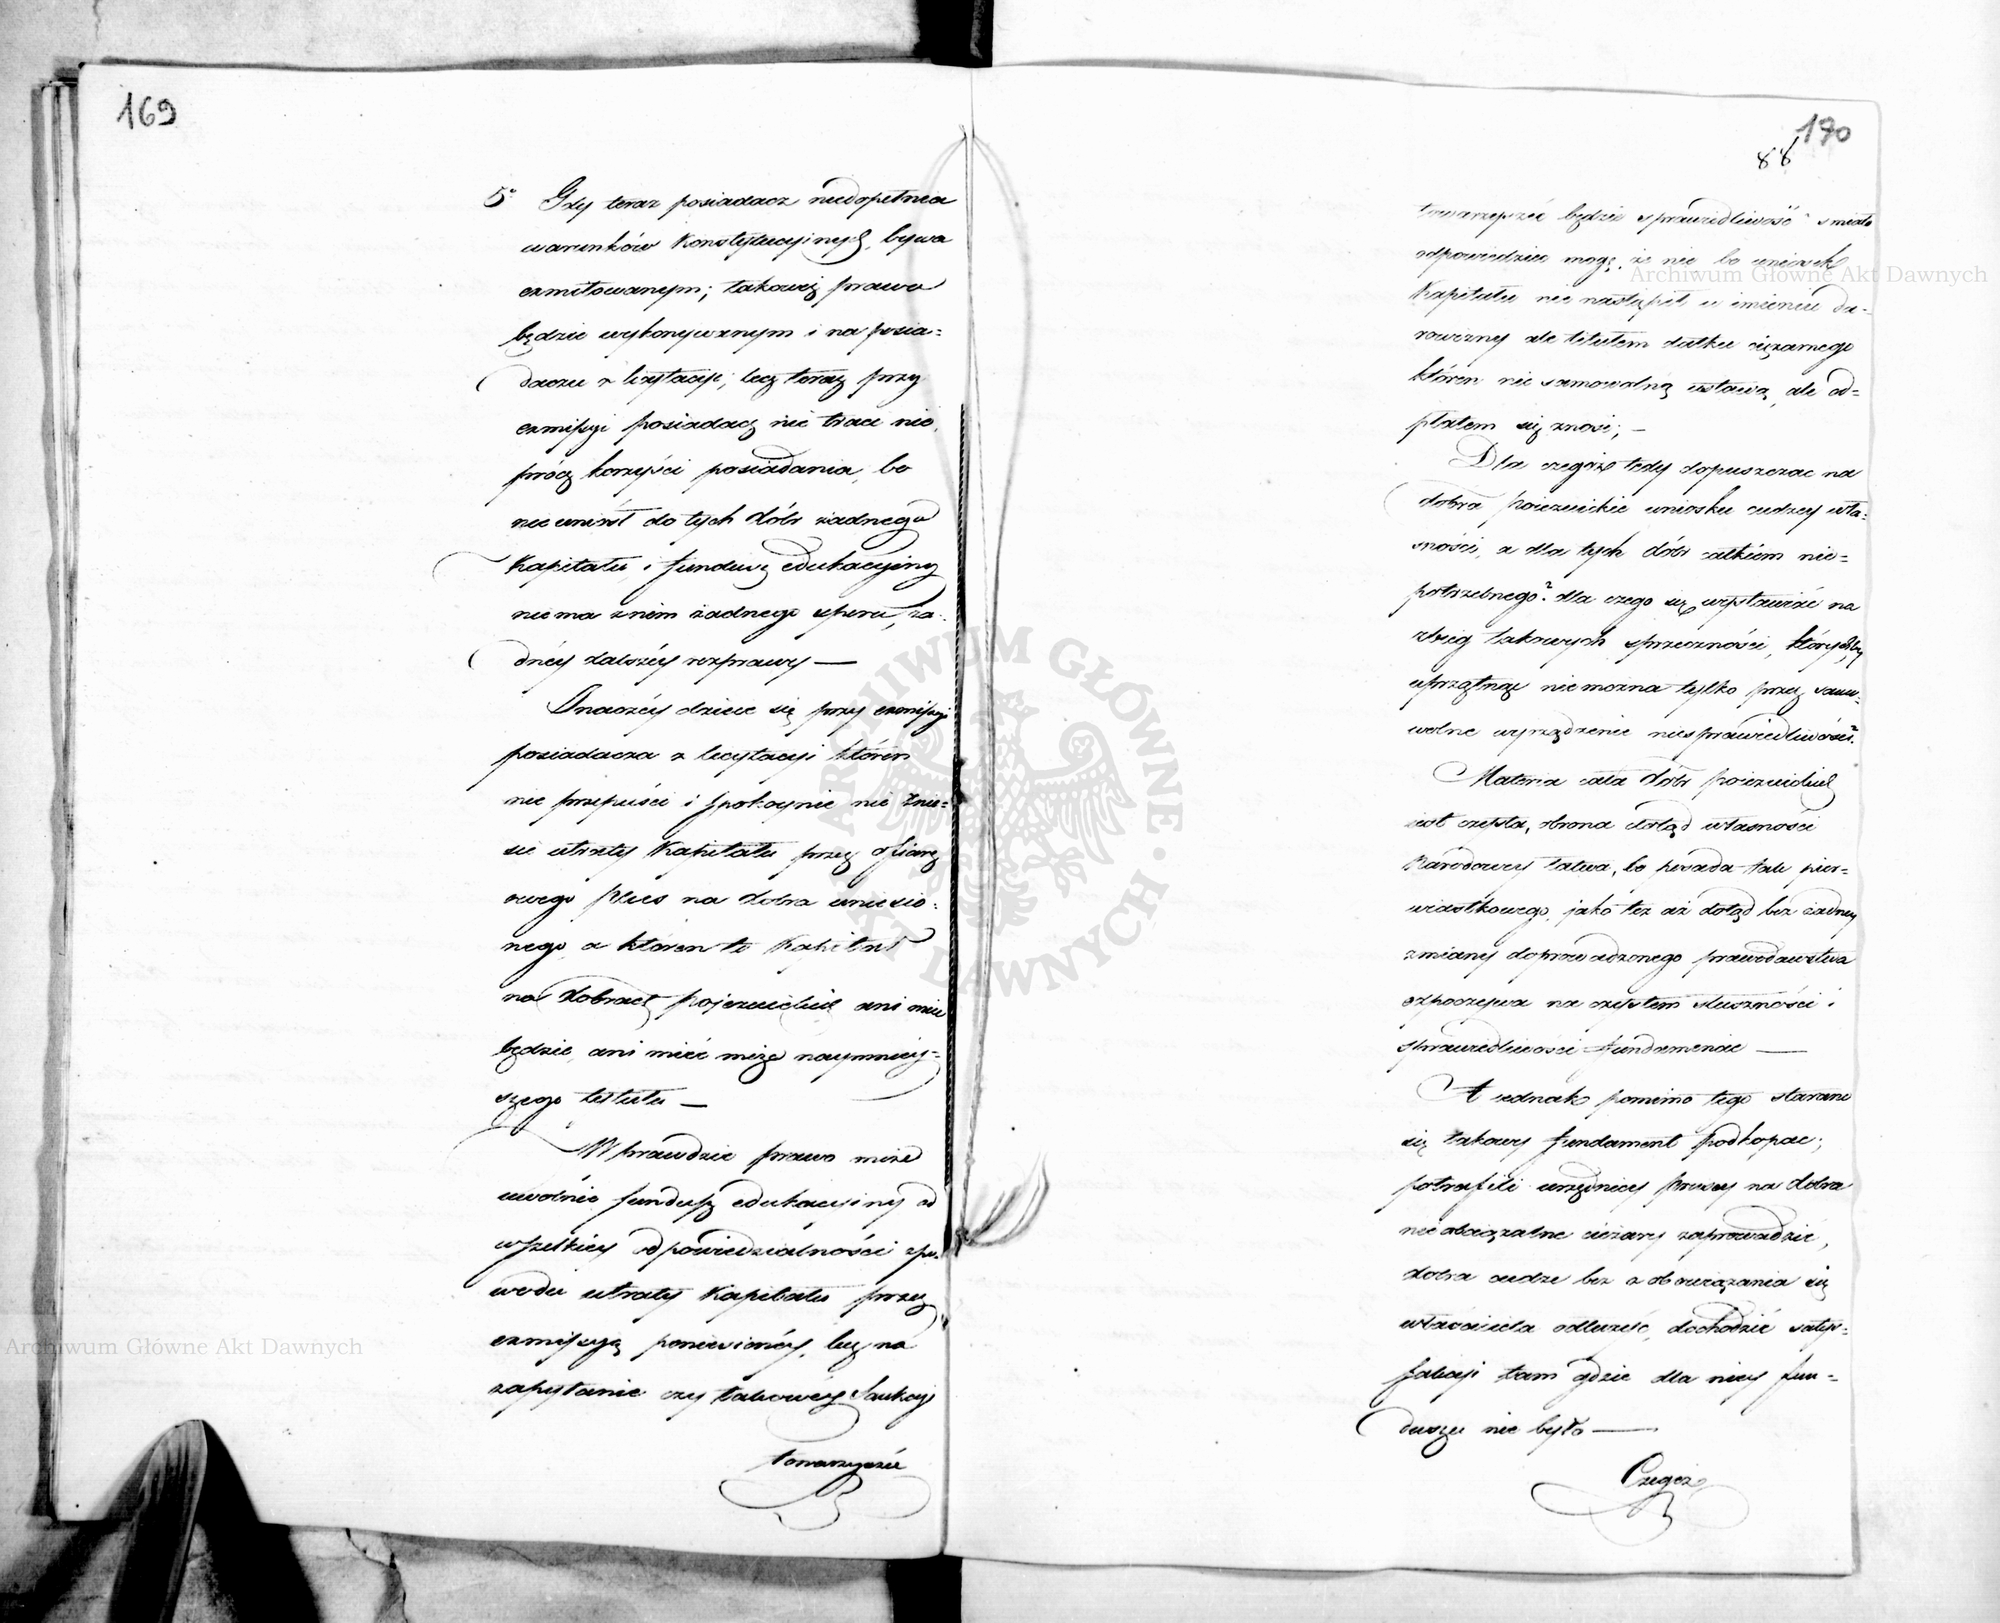 169
5° Gdy teraz posiadacz niedopełnia
warunków Konstytucyinych, bywa
exmitowanym; takowéż prawo
będzie wykonywanym i na posia-
daczu z licytacyi, lecz teraz przy
exmissyi posiadacz nie traci nic,
prócz korzyści posiadania, bo
nie wniósł do tych dóbr żadnego
Kapitału, i fundusz edukacyiny
nie ma z nim żadnego sporu, ża-
dnéy dalszéy rozprawy —
Inaczéy dzieie się przy exmissyi
posiadacza z licytacyi któren
nie przepuści i spokoynie nie znie-
sie utraty Kapitału przez ofiarę
owego Plus na dobra wniesio-
nego, a któren to Kapitał
na dobrach pojezuickich ani mieć
będzie, ani mieć może naymniey-
szego tytułu —
Wprawdzie prawo może
uwolnić fundusz edukacyiny od
wszelkiey odpowiedzialności z po-
wodu utraty Kapitału przez
exmissyą poniesionéy, lecz na
zapytanie czy takowéy Sankcyi
towarzyszyć
170
88
towarzyszyć będzie sprawiedliwość śmiało
odpowiedzieć mogę, że nie bo wniosek
Kapitału nie nastąpił w imieniu da-
rowizny ale tytułem datku ciężarnego
któren nie samowolną ustawą, ale od-
płatem się znosi; —
Dla czegóż tedy dopuszczać na
dobra pojezuickie wniosku cudzey wła-
sności, a dla tych dóbr całkiem nie-
potrzebnego? dla czego się wystawiać na
zbieg takowych sprzeczności, których by
uprzątnąć niemożna tylko przez samo-
wolne wyrządzenie niesprawiedliwości?
Materia cała dóbr pojezuickich
iest czysta, obrona dotąd własności
Narodowey łatwa, bo posada tak pier-
wiastkowego, jako też aż dotąd bez żadney
zmiany doprowadzonego prawodawstwa
spoczywa na czystem słuszności i
sprawiedliwości fundamencie —
A iednak pomimo tego starano
się takowy fundament podkopać;
potrafili urzędnicy Pruscy na dobra
nie obciążalne ciężary zaprowadzić,
dobra cudze bez zobowiązania się
właściciela odłużyć, dochodzić satys-
fakcyi tam gdzie dla niey fun-
duszu nie było —
Czegóż
Archiwum Główne Akt Dawnych
Archiwum Główne Akt Dawnych
ARCHIWUM GŁÓWNE AKT DAWNYCH